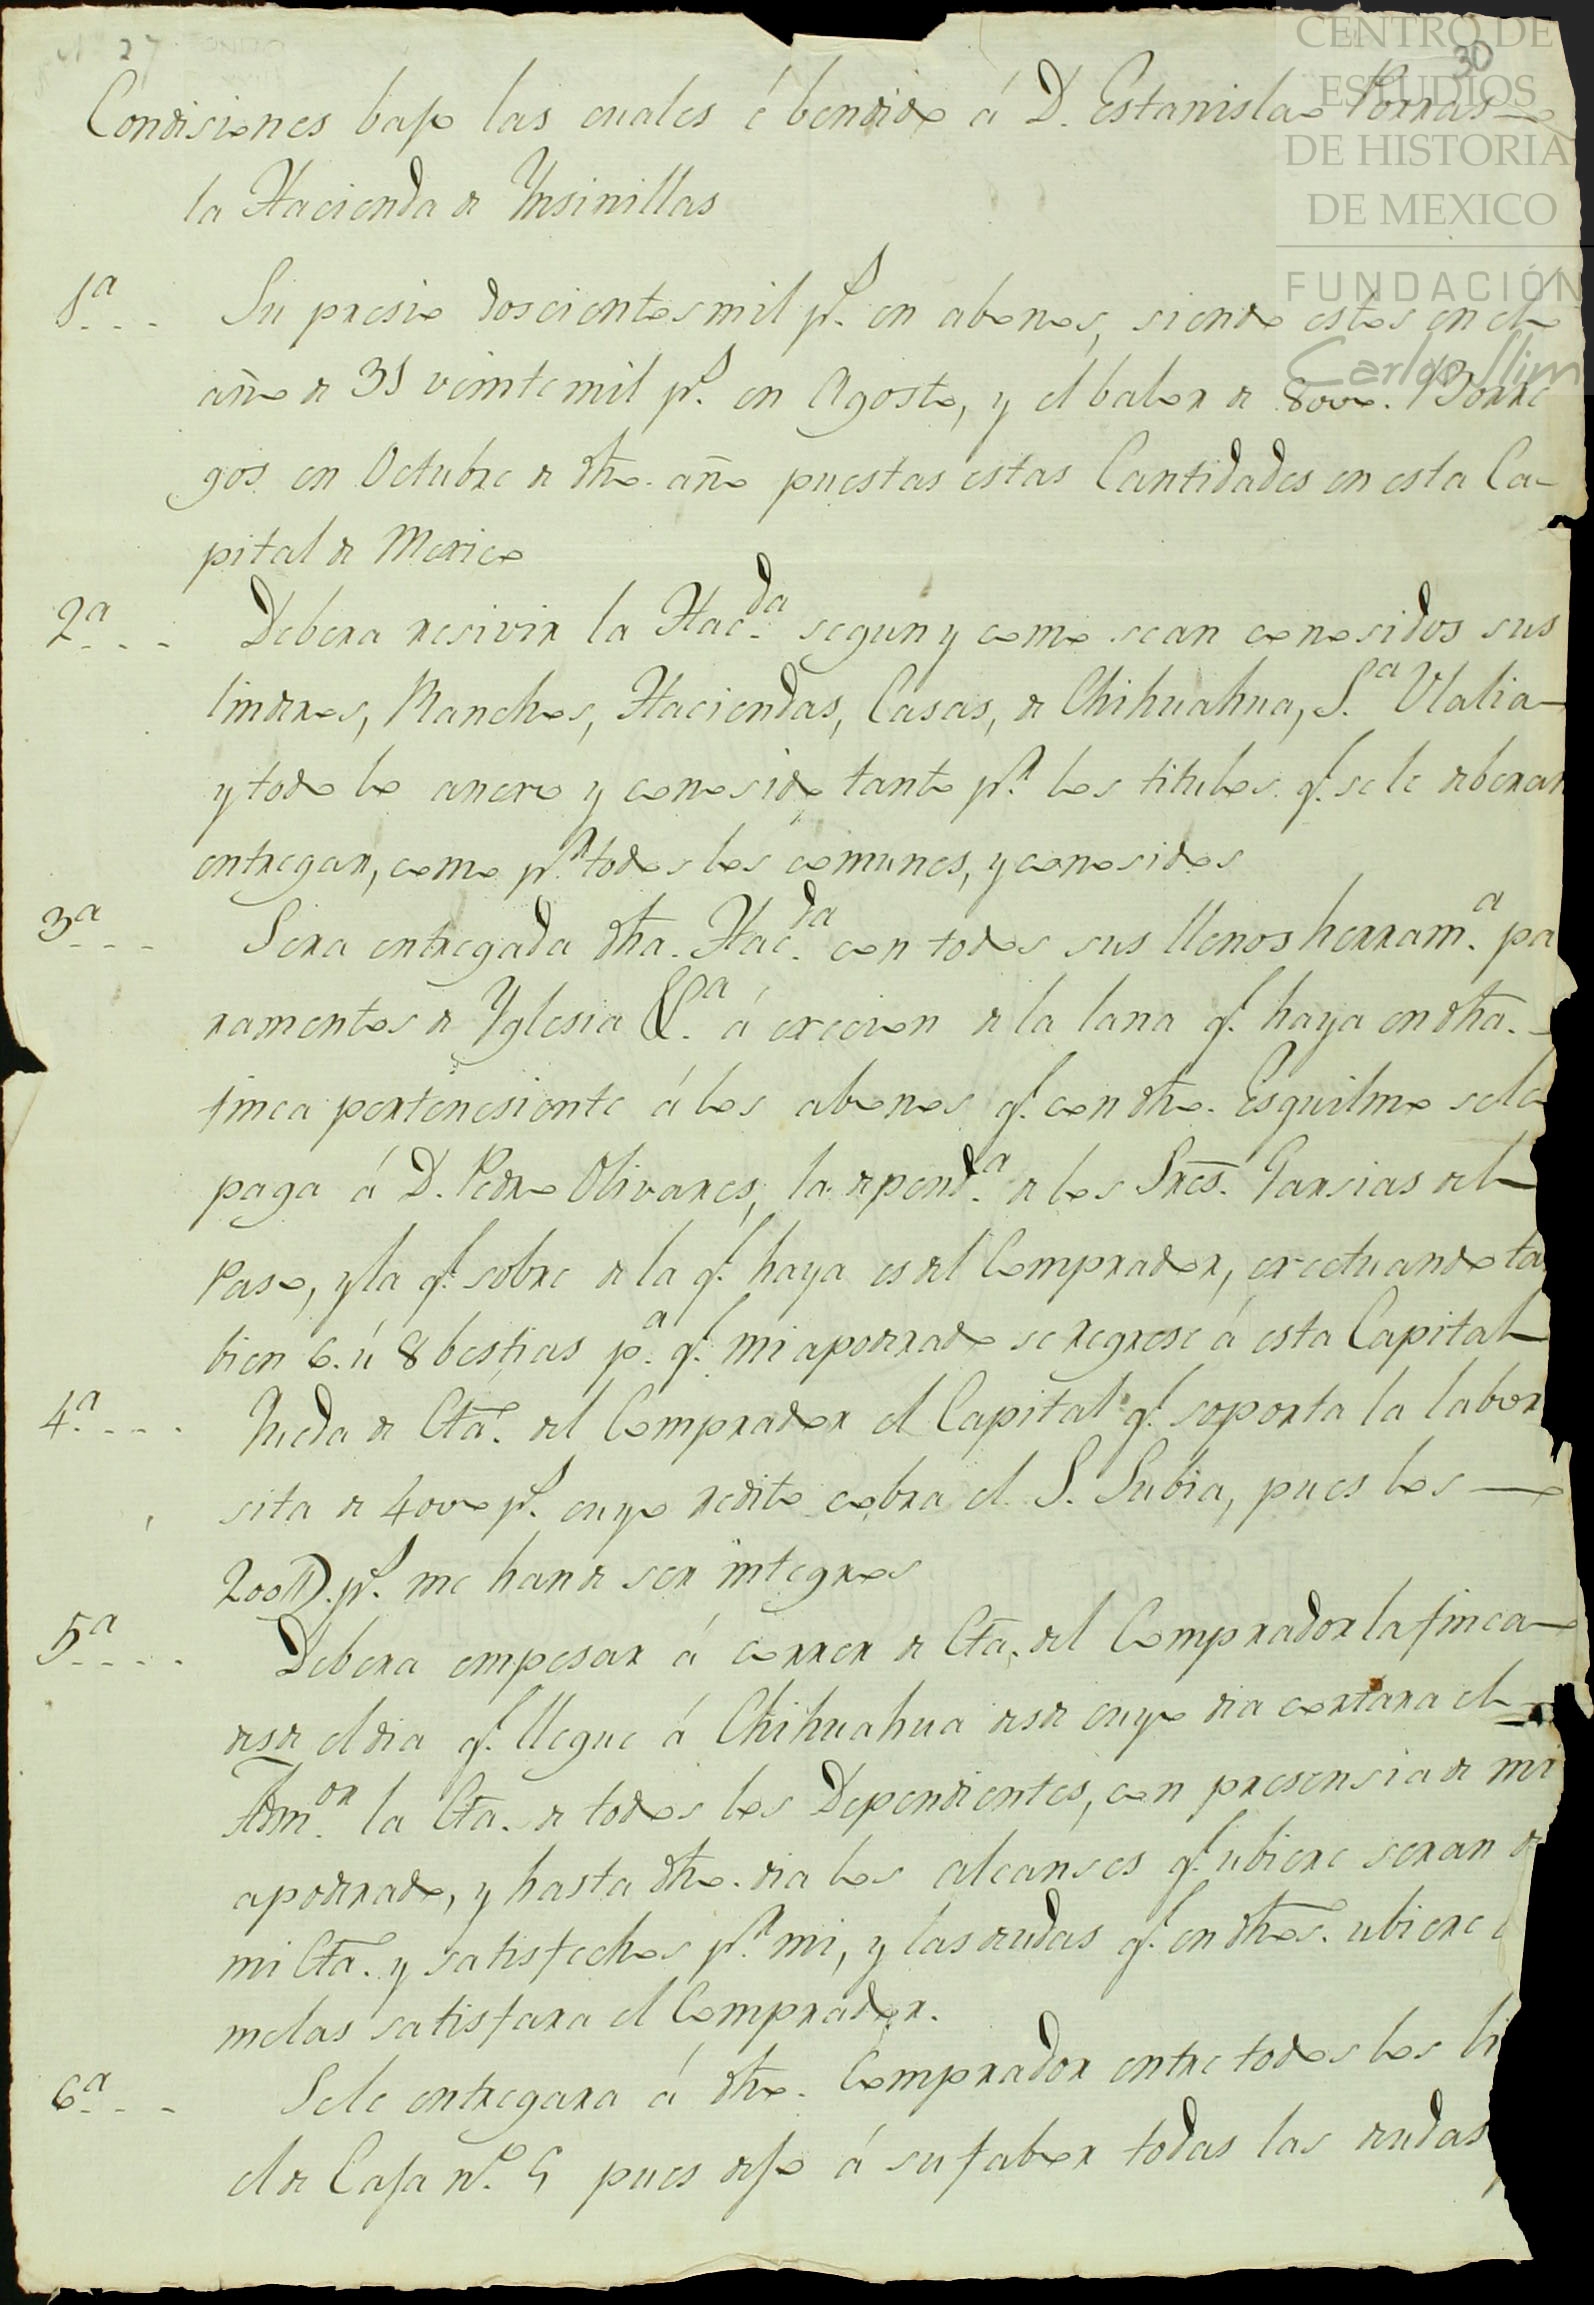 27
30
CENTRO DE
ESTUDIOS
DE HISTORIA
DE MEXICO
FUNDACIÓN
Carlos Slim
Condisiones bajo las cuales é bendido á D. Estanislao Porras
la Hacienda de Ynsinillas
1ª Su presio doscientos mil p.s en abonos, siendo estos en el
año de 31 veinte mil p.s en Agosto, y el balor de 8000. Borre
gos en Octubre de dho. año puestas estas Cantidades en esta Ca-
pital de Mexico
2ª Debera resivir la Hac.da segun y como sean conosidos sus
linderos, Ranchos, Haciendas, Casas, de Chihuahua, S.ª Vlalia
y todo lo anexo y conosido tanto p.r los titulos q.e se le deberan
entregar, como p.r todos los comunes, y conosidos
3ª Sera entregada dha. Hac.da con todos sus llenos herram.ª pa
ramentos de Yglesia &.ª á excecion de la lana q.e haya en dha.
finca pertenesiente á los abonos q.e con dho. Esquilmo se le
paga á D. Pedro Olivares, la depend.ª de los Sres. Garsias del
Paso, y la q.e sobre de la q.e haya es del Comprador, exectuando ta
bien 6. ú 8 bestias p.ª q.e mi apoderado se regrese á esta Capital
4ª Queda de Cta. del Comprador el Capital q.e soporta la labor
sita de 4000 p.s cuyo redito cobra el S. Subia, pues los
200D. p.s me han de ser integros
5ª Debera empesar á correr de Cta. del Comprador la finca
desde el dia q.e llegue á Chihuahua desde cuyo dia cortara el
Adm.or la Cta. de todos los Dependientes, con presensia de mi
apoderado, y hasta dho. dia los alcanses q.e ubiere seran de
mi Cta. y satisfechos p.r mi, y las deudas q.e en dhos. ubiere
melas satisfara el Comprador.
6ª Se le entregara á dho. Comprador entre todos los li
el de Caja n.º 5 pues dejo á su fabor todas las deudas